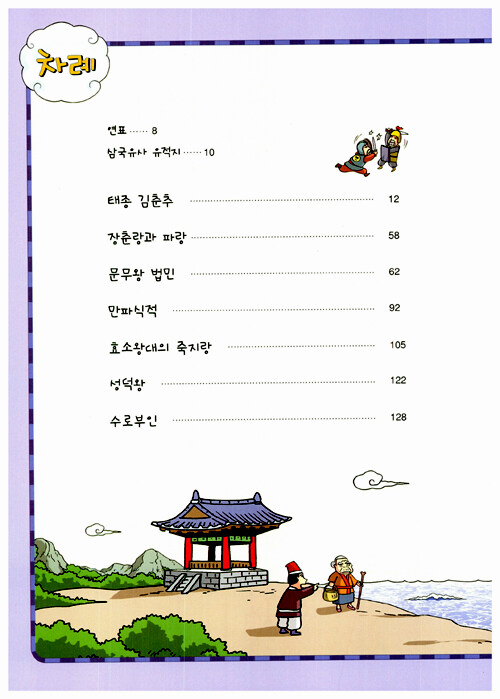 차례
연표 ······ 8
삼국유사 유적지 ······ 10
태종 김춘추 ······ 12
장춘랑과 파랑 ······ 58
문무왕 법민 ······ 62
만파식적 ······ 92
효소왕대의 죽지랑 ······ 105
성덕왕 ······ 122
수로부인 ······ 128